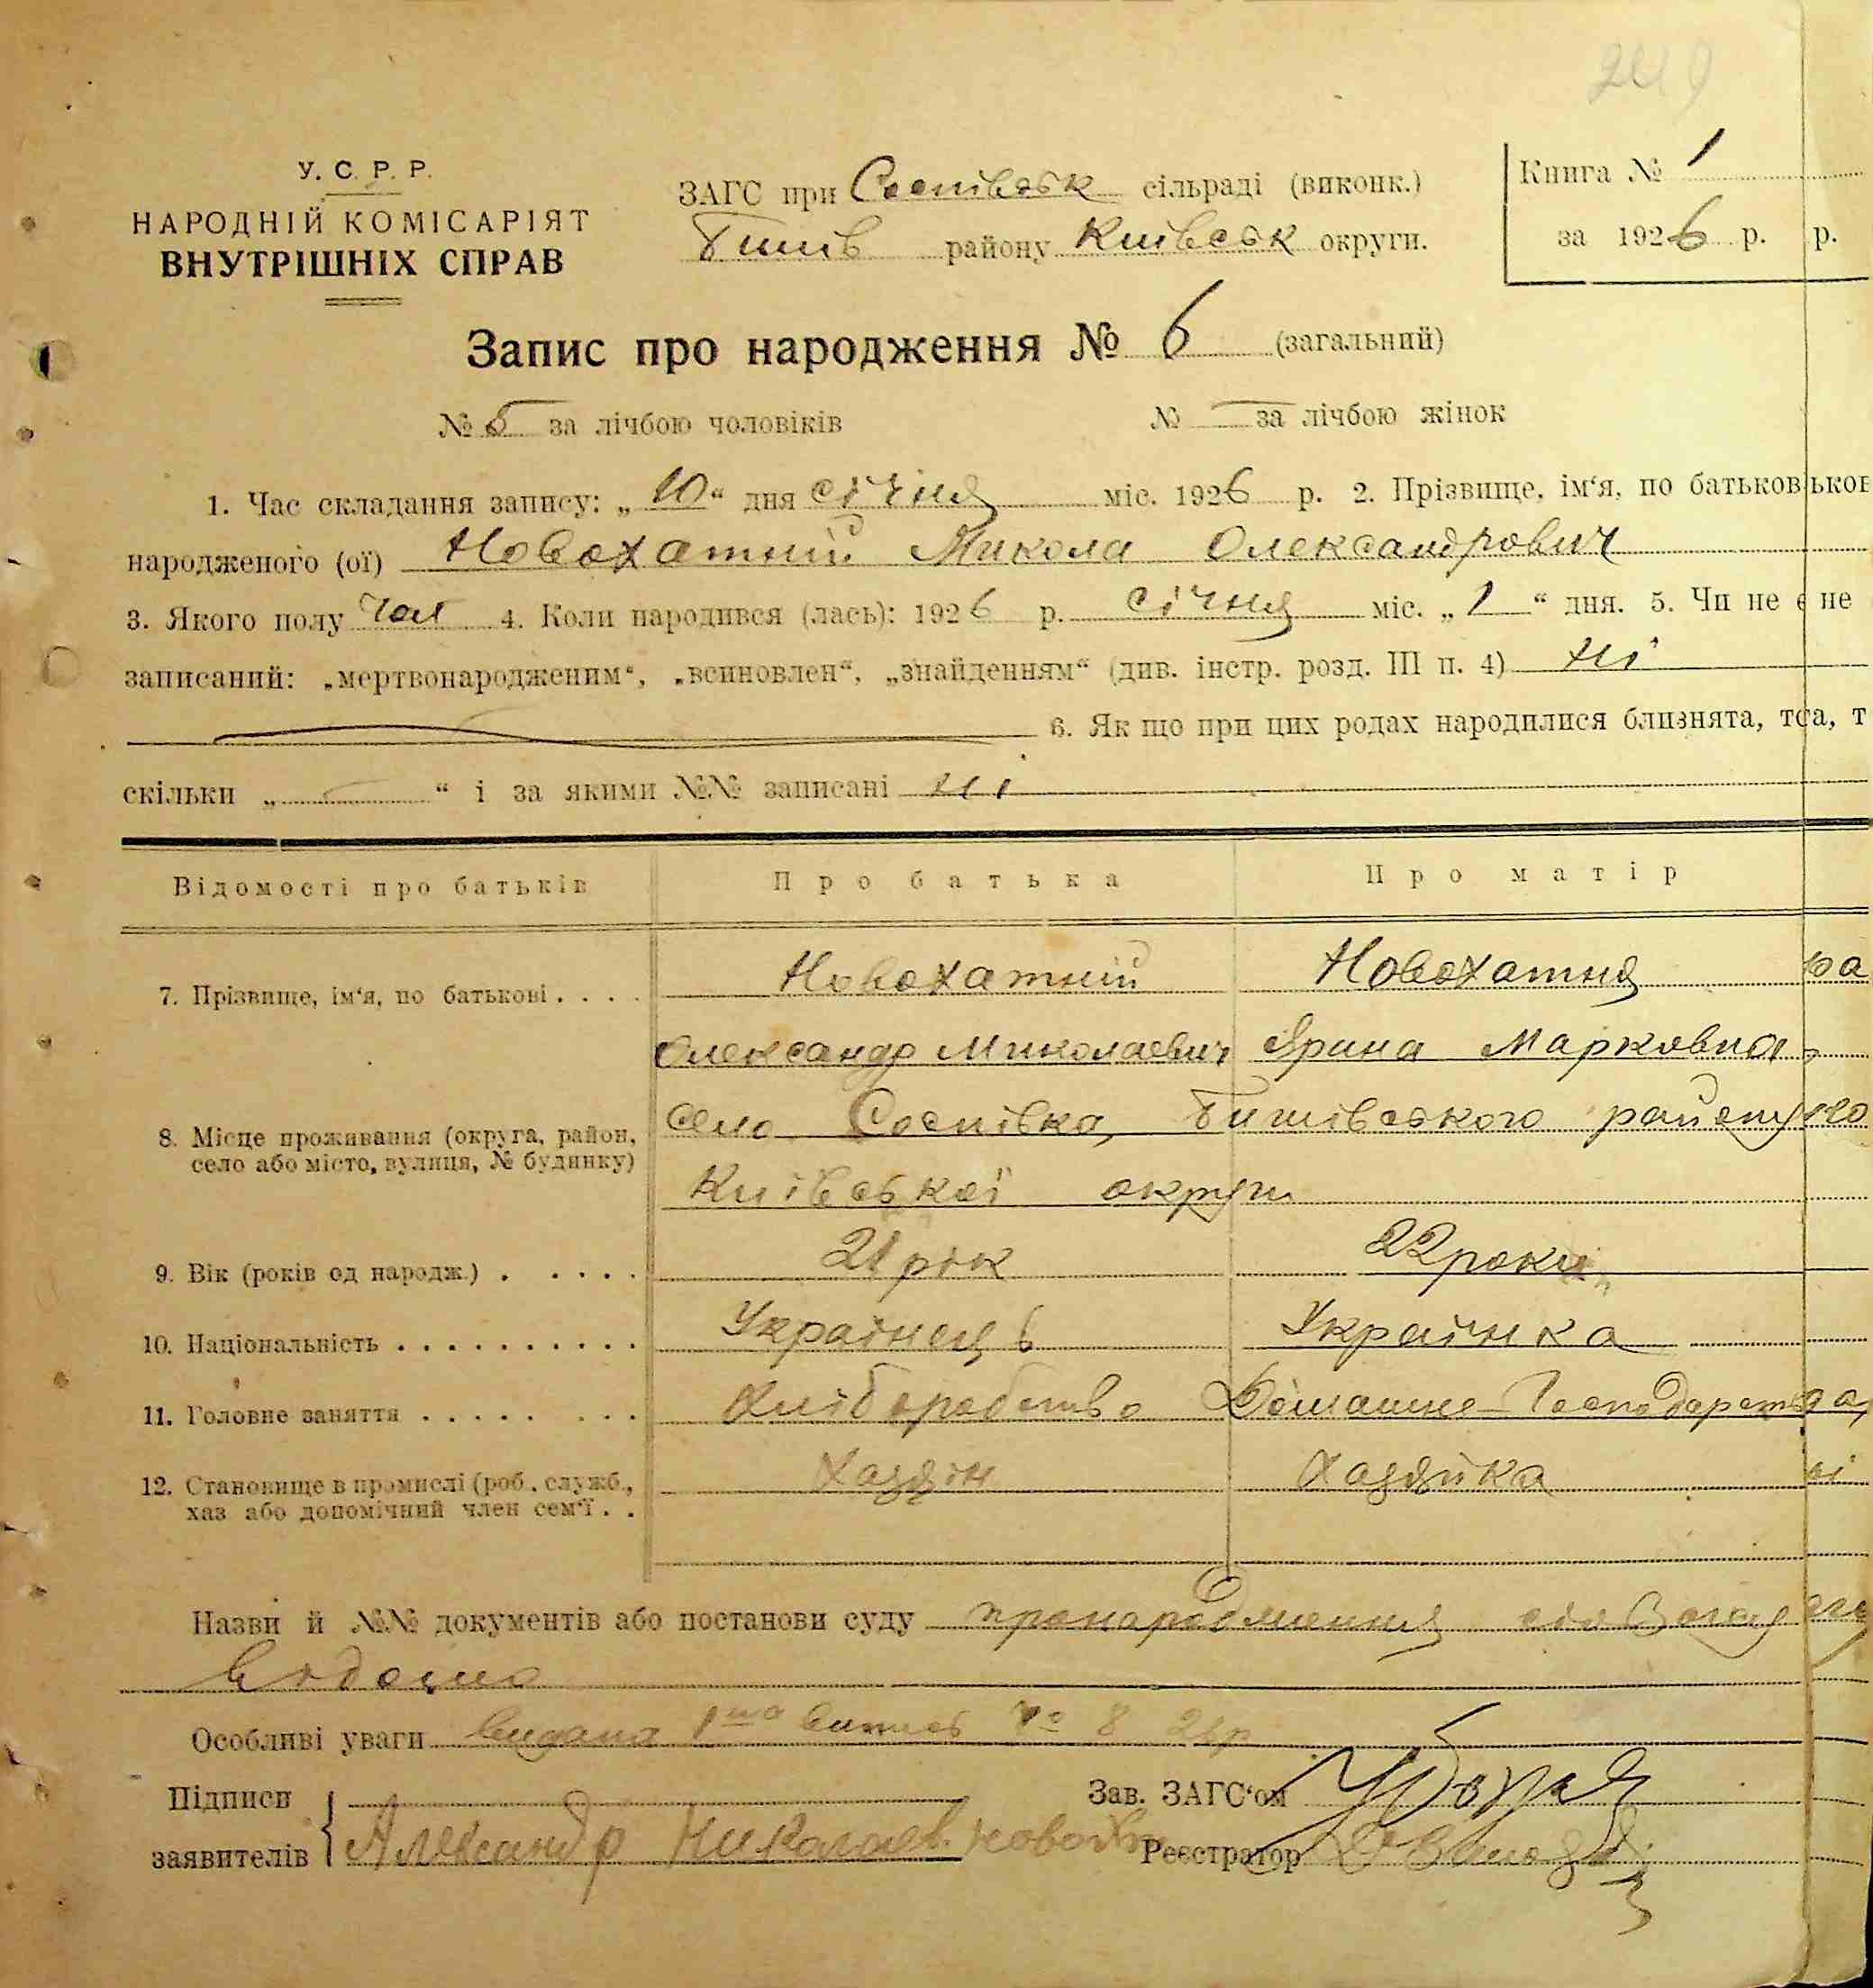 249
У. С. Р. Р.
НАРОДНІЙ КОМІСАРІЯТ
ВНУТРІШНІХ СПРАВ
ЗАГС при Соснівськ сільраді (виконк.)
Бишів району Київськ округи.
Книга № 1
за 1926 р. р.
Запис про народження № 6 (загальний)
№ 5 за лічбою чоловіків № — за лічбою жінок
1. Час складання запису: „10“ дня січня міс. 1926 р. 2. Прізвище, ім‘я, по батьков ьков
народженого (ої) Новохатній Микола Олександрович
3. Якого полу чол 4. Коли народився (лась): 1926 р. січня міс. „1“ дня. 5. Чи не є не
записаний: „мертвонародженим“, „всиновлен“, „знайденням“ (див. інстр. розд. III п. 4) ні
6. Як що при цих родах народилися близнята, то а, т
скільки „ — “ і за якими №№ записані ні
Відомості про батьків Про батька Про матір
7. Прізвище, ім‘я, по батькові . . . . Новохатній Новохатня ра
Олександр Миколаевич Ярина Марковна
8. Місце проживання (округа, район,
село або місто, вулиця, № будинку)
село Соснівка, Бишівського району
Київської округи
9. Вік (років од народж.) . . . . . 21 рік 22 роки
10. Національність . . . . . . . . . . Українець Українка
11. Головне заняття . . . . . . . . Хліборобство Домашне-Господарство
12. Становище в промислі (роб., служб.,
хаз або допомічний член сем‘ї . .
Хазяін Хазяйка
Назви й №№ документів або постанови суду пронародження
Особливі уваги видана 1 № 8 21р
Підписи
заявителів
Александр Николаев.
Зав. ЗАГС‘ом
Реєстратор